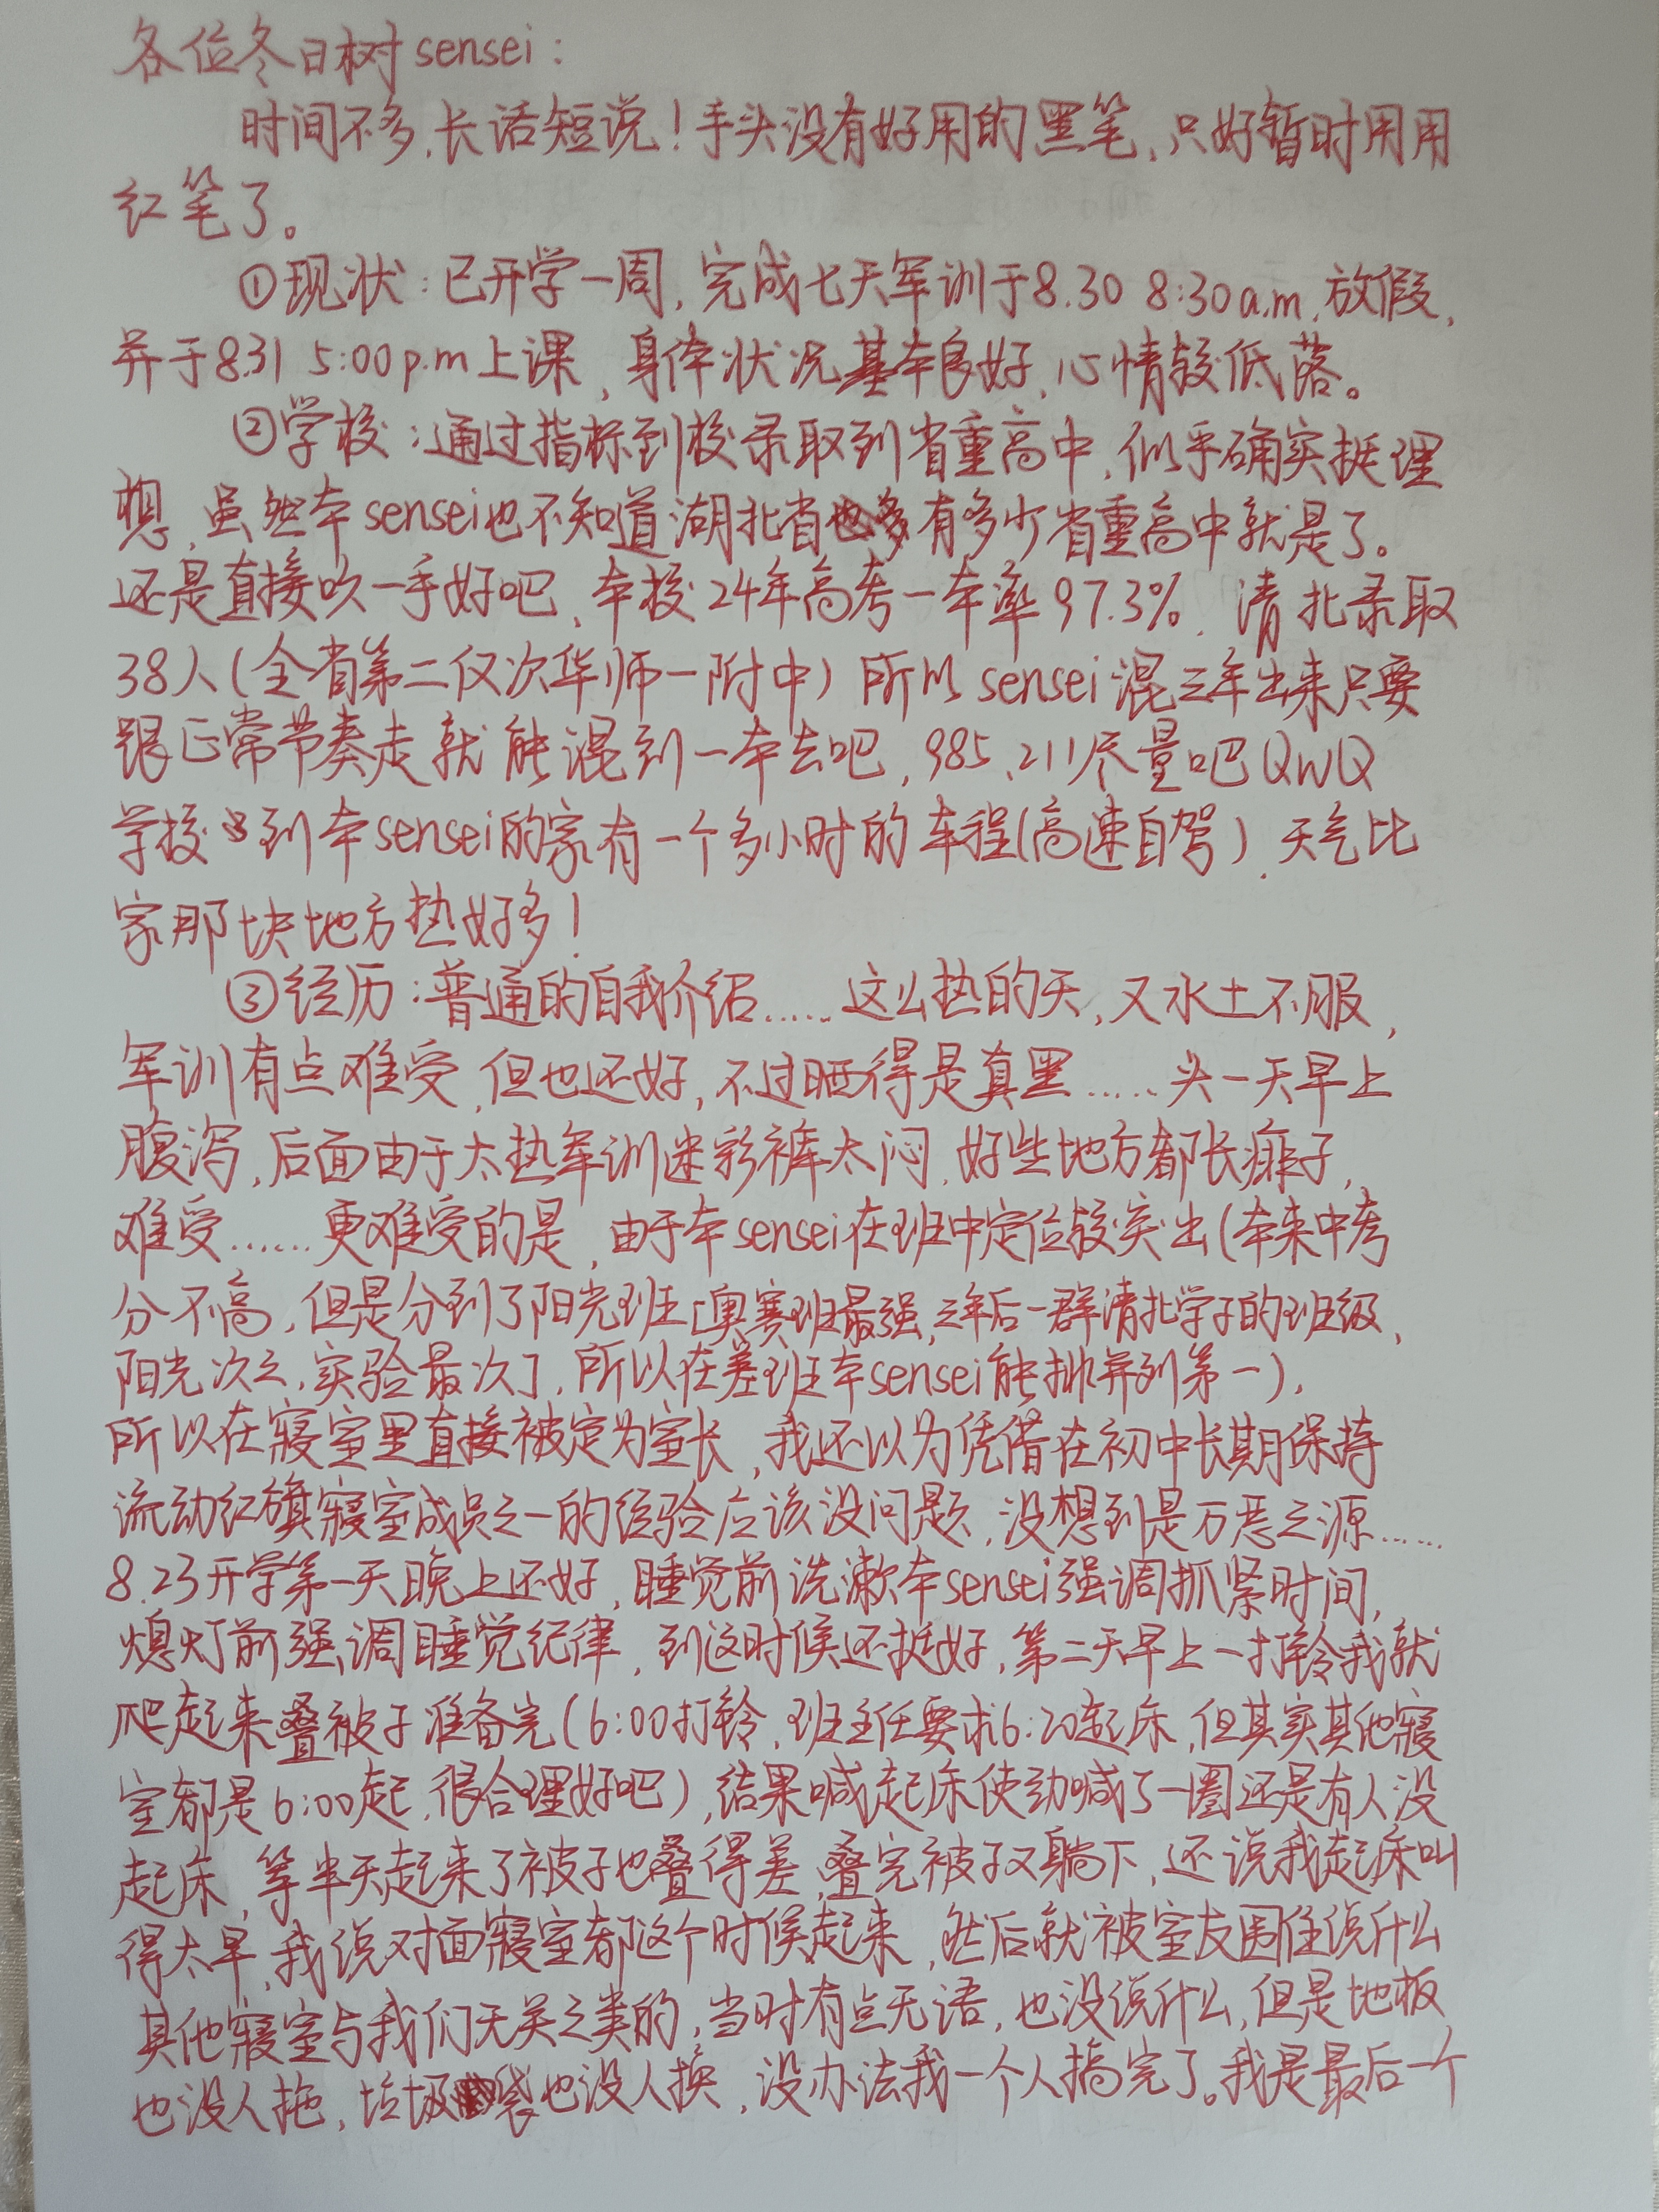 各位冬日树sensei：
时间不多，长话短说！手头没有好用的黑笔，只好暂时用用
红笔了。
①现状：已开学一周，完成七天军训于8.30 8:30a.m.放假，
并于8.31 5:00p.m上课，身体状况基本良好，心情较低落。
②学校：通过指标到校录取到省重高中，似乎确实挺理
想，虽然本sensei也不知道湖北省有多少省重高中就是了。
还是直接吹一手好吧，本校24年高考一本率97.3%，清北录取
38人(全省第二仅次华师一附中)所以sensei混三年出来只要
跟正常节奏走就能混到一本去吧，985、211尽量吧QWQ
学校到本sensei的家有一个多小时的车程(高速自驾)，天气比
家那块地方热好多！
③经历：普通的自我介绍……这么热的天，又水土不服，
军训有点难受，但也还好，不过晒得是真黑……头一天早上
腹泻，后面由于太热军训迷彩裤太闷，好些地方都长痱子，
难受……更难受的是，由于本sensei在班中定位较突出(本来中考
分不高，但是分到了阳光班[奥赛班最强，三年后一群清北学子的班级，
阳光次之，实验最次]，所以在差班本sensei能排并列第一)，
所以在寝室里直接被定为室长，我还以为凭借在初中长期保持
流动红旗寝室成员之一的经验应该没问题，没想到是万恶之源……
8.23开学第一天晚上还好，睡觉前洗漱本sensei强调抓紧时间，
熄灯前强调睡觉纪律，到这时候还挺好，第二天早上一打铃我就
爬起来叠被子准备完(6:00打铃，班主任要求6:20起床，但其实其他寝
室都是6:00起，很合理好吧)，结果喊起床使劲喊了一圈还是有人没
起床，等半天起来了被子也叠得差，叠完被子又躺下，还说我起床叫
得太早，我说对面寝室都这个时候起来，然后就被室友围住说什么
其他寝室与我们无关之类的，当时有点无语，也没说什么，但是地板
也没人拖，垃圾袋也没人换，没办法我一个人搞完了。我是最后一个